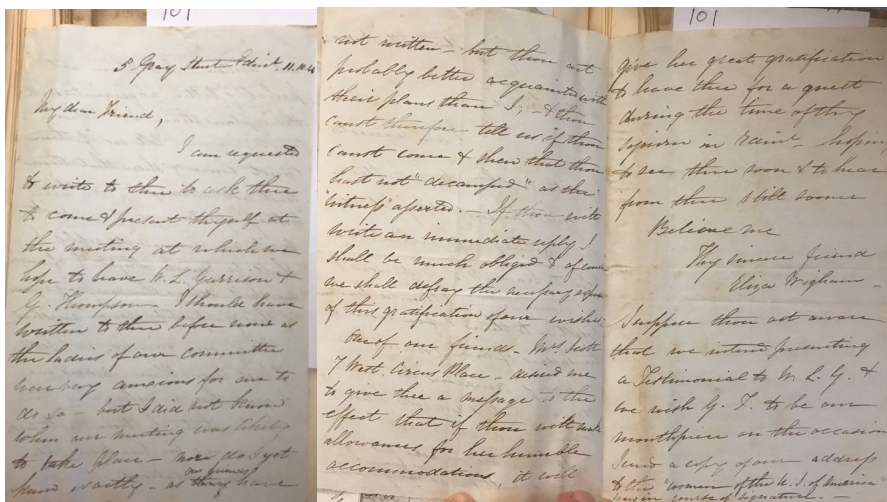 101
5 Gray Street Edinr. 11.10.46
My dear Friend,
I am requested
to write to thee to ask thee
to come & present thyself at
the meeting at which we
hope to have W. L. Garrison &
G. Thompson – I should have
written to thee before now as
the ladies of our committee
were very anxious for me to
do so – but I did not know
when our meeting was likely
to take place – nor do I yet
know exactly – as our friends have
101
not written – but thou art
probably better acquainted with
their plans than I, – & thou
canst therefore tell us if thou
canst come & shew that thou
hast not "decamped" as the
"Witness" asserted. – If thou wilt
write an immediate reply I
shall be much obliged & of course
we shall defray the necessary expense
of this gratification of our wishes
One of our friends – Mrs
7 West Circus Place – desired me
to give thee a message to the
effect that if thou wilt make
allowances for her humble
accommodations, it will
give her great gratification
to have thee for a guest
during the time of thy
sojourn in Edinr – hoping
to see thee soon & to hear
from thee still sooner
Believe me
Thy sincere friend
Eliza Wigham –
I suppose thou art aware
that we intend presenting
a Testimonial to W. L. G. &
we wish G. T. to be our
mouthpiece on the occasion
I send a copy of our address
to the "women of the U. S. of America
now in course of signature –